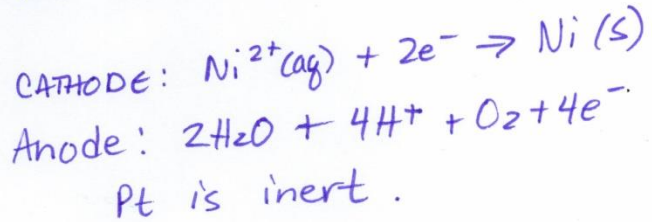 CATHODE: Ni²⁺(aq) + 2e⁻ → Ni (s)
Anode: 2H₂O + 4H⁺ + O₂ + 4e⁻.
Pt is inert.